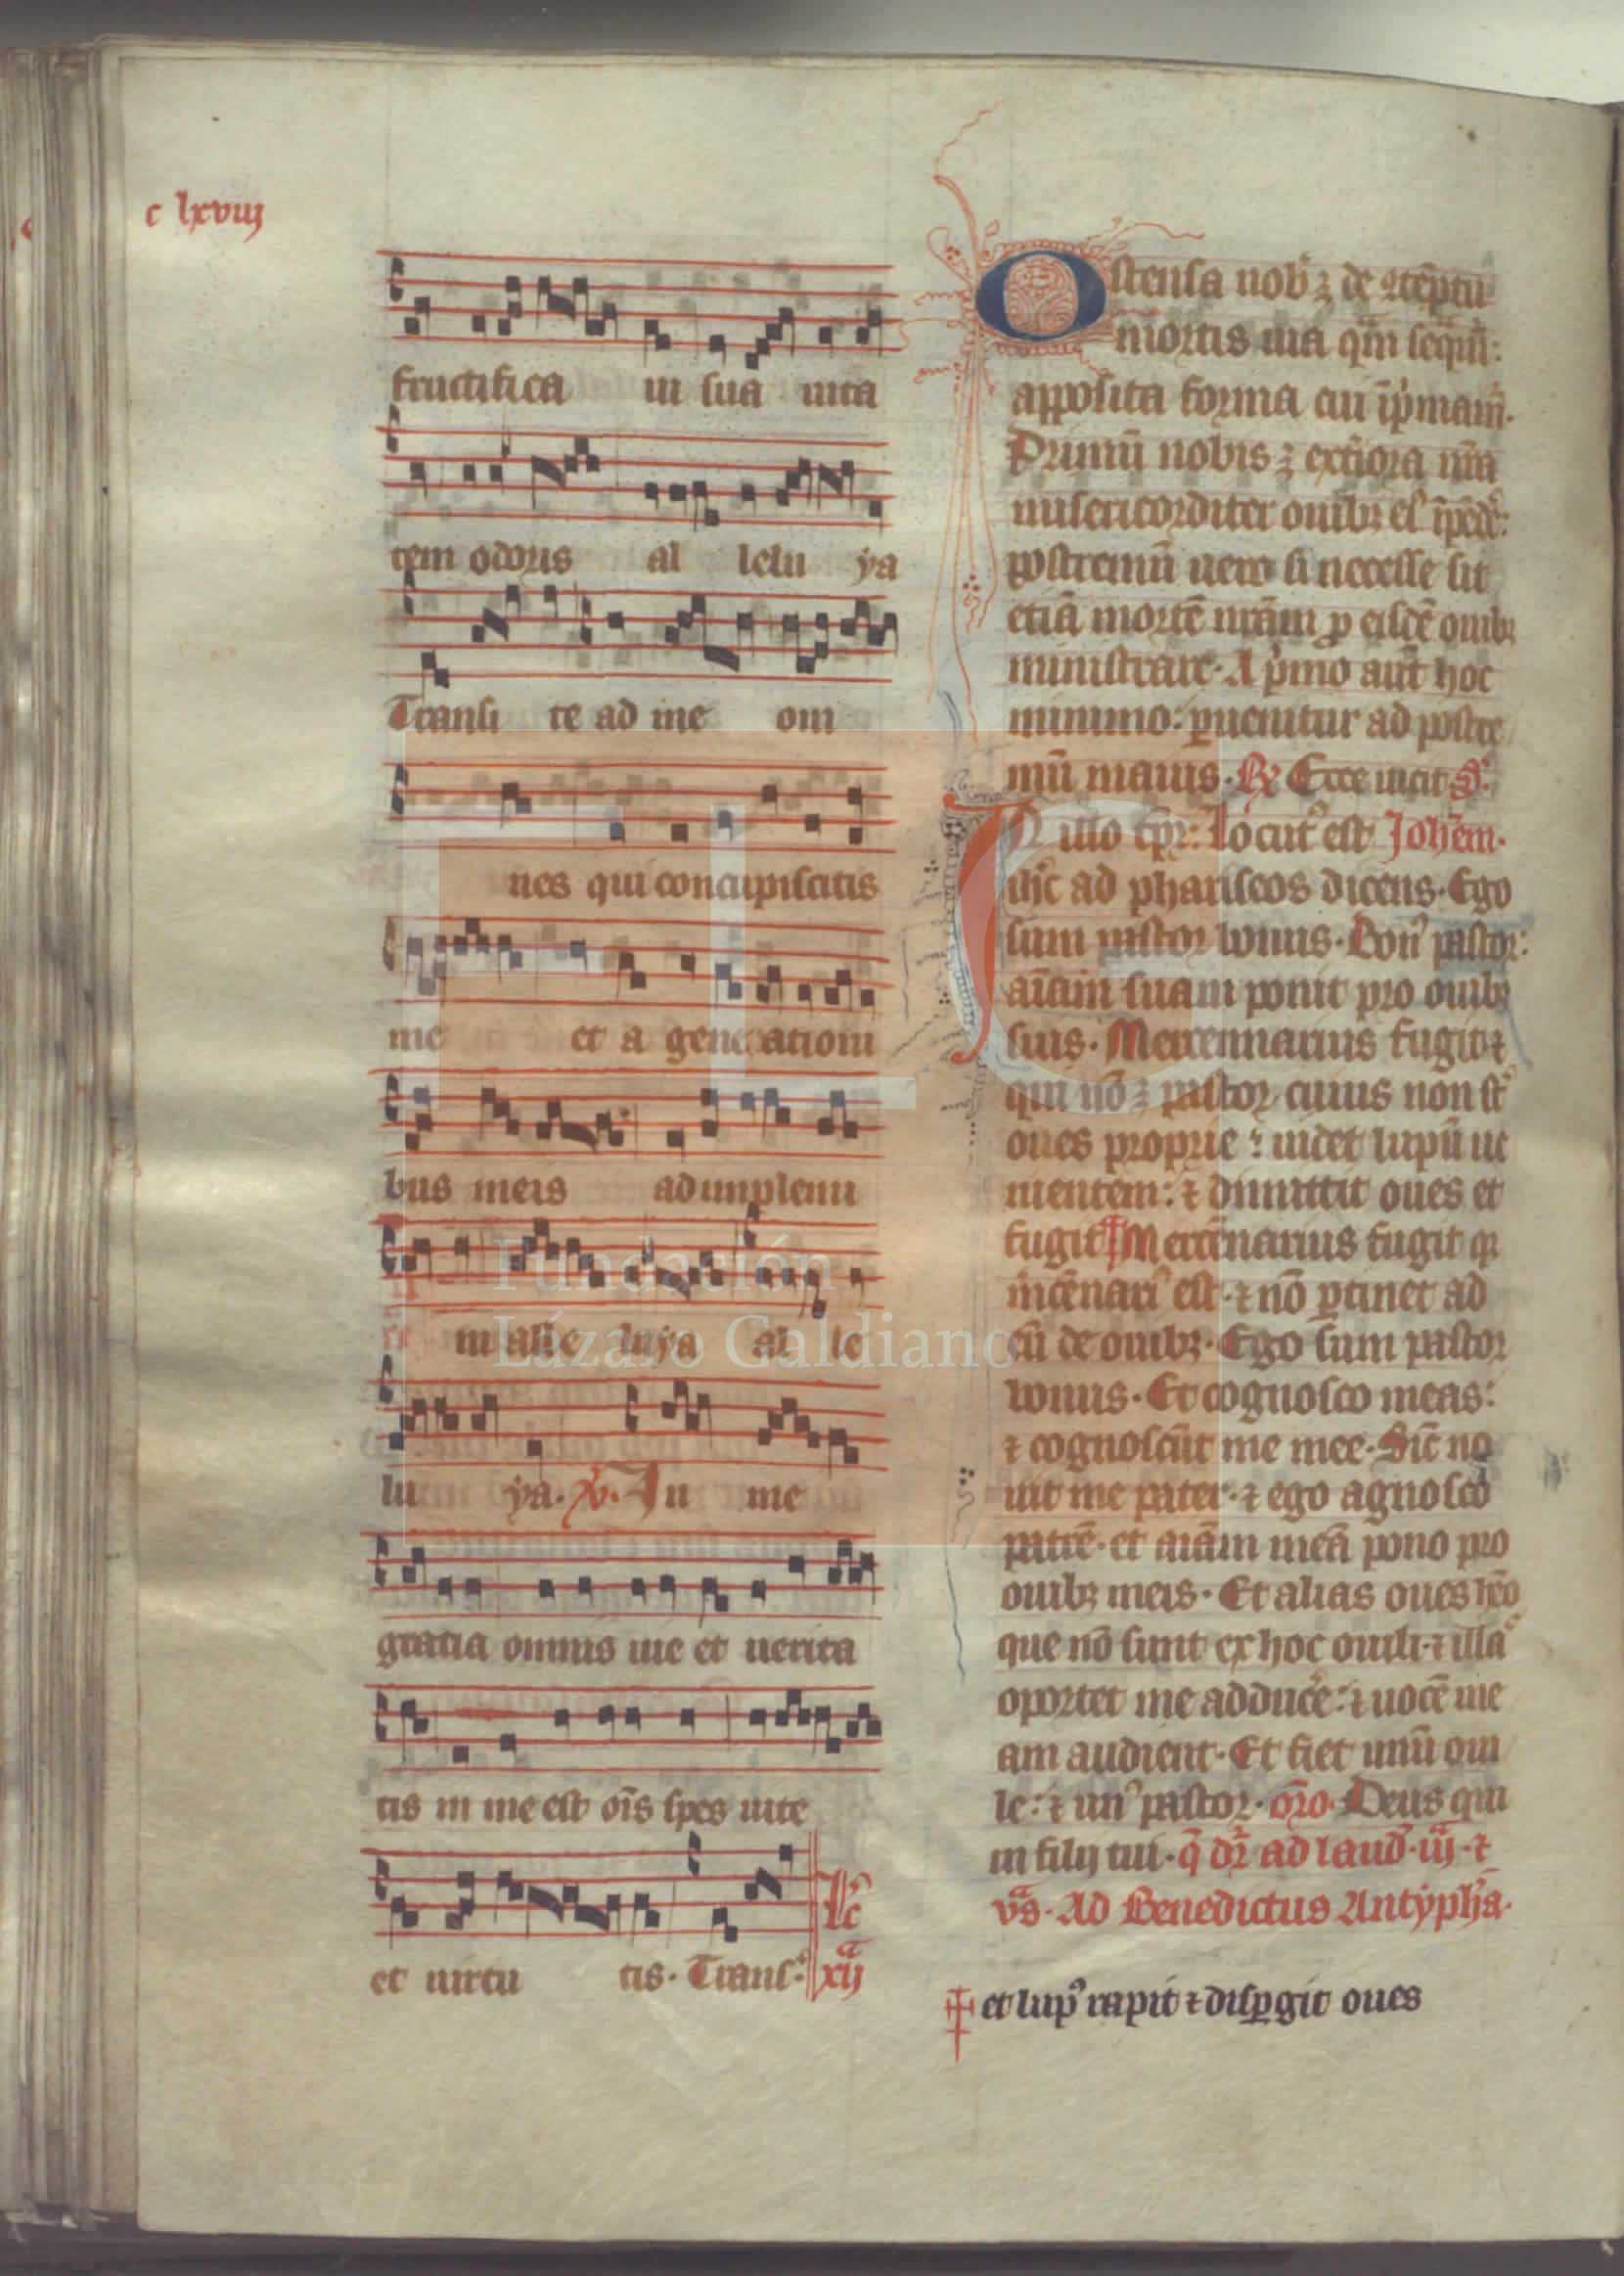 c lxviij
fructifica ui sua uita
tem odoris al lelu ya
Transi te ad me om
nes qui concupiscitis
me et a generationi
bus meis adimplemi
ni alle luya al le
lu ya. V. In me
gratia omnis uie et uerita
tis in me est oīs spes uite
et uirtu tis. Trans. Lc̄ xij
Ostensa nob ꝫ de ꝯtēptu
mortis uia qm̄ seqm̄:
apposita forma cui īpmam̄.
Primū nobis ꝫ exteriora nr̄a
misericorditer ouibꝫ ei' īpēde:
postremū uero si necesse sit
etiā mortē nrām ꝓ eisdē ouibꝫ
ministrare. A pimo aut hoc
minimo: ꝑuenitur ad postre
mū maius. R Ecce uicit. S.
IN illo tpr: Locut' est Johēm.
ihc ad phariseos dicens. Ego
sum pastor bonus. Bon' pastor:
aīam suam ponit pro ouibꝫ
suis. Mercennarius fugit ⁊
qui nō ꝫ pastor cuius non st
oues proprie: uidet lupū ue
nientem: ⁊ dimittit oues et
fugit ‡ Mercēnarius fugit qꝫ
mcēnari' est. ⁊ nō ꝑtinet ad
eū de ouibꝫ. Ego sum pastor
bonus. Et cognosco meas:
⁊ cognoscūt me mee. Sic̄ no
uit me pater. ⁊ ego agnosco
patrē. et aīam meā pono pro
ouibꝫ meis. Et alias oues hēo
que nō sunt ex hoc ouili. ⁊ illas
oportet me adducē: ⁊ uocē me
am audient. Et fiet unū oui
le: ⁊ un' pastor. oro. Deus qui
in filij tui. q̄ dr̄ ad laud. iij. ⁊
vs. Ad Benedictus Antypha.
‡ et lup' rapit ⁊ disꝑgit oues
Fundación
Lázaro Galdiano